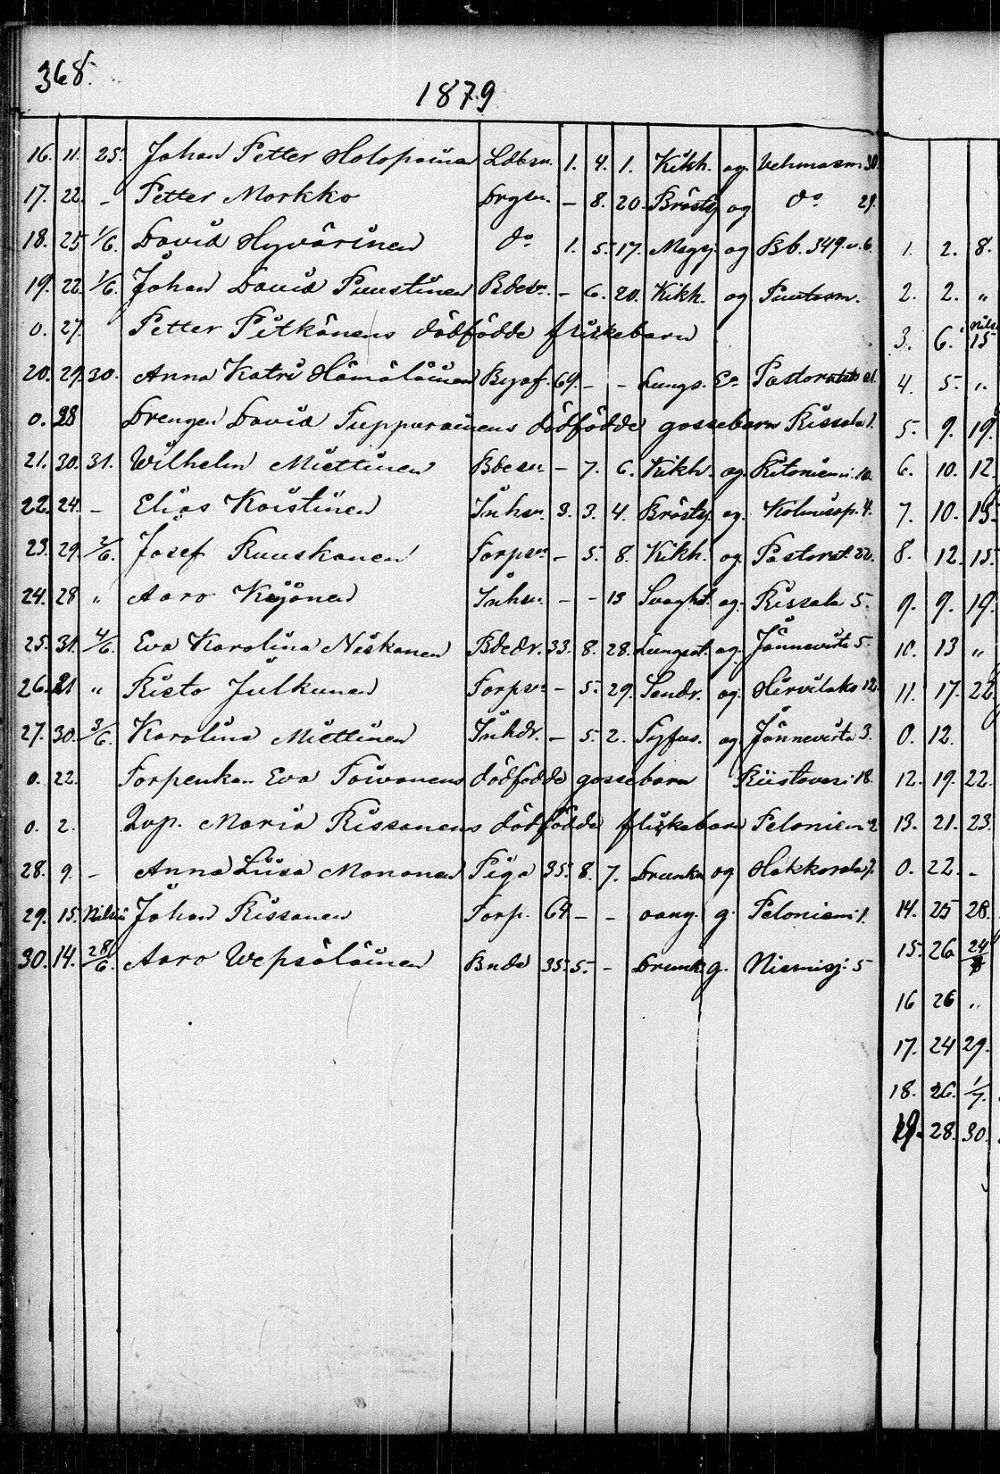 368.
1879
16. 11. 25. Johan Petter Holopainen Ldbsn. 1. 4. 1. Kikh. og. Vehmasm. 30.
17. 22. - Petter Markko Drgsn. - 8. 20. Bröstj og do 29.
18. 25 1/6. David Hyvärinen do 1. 5. 17. Magsj. og Bb. 349. v. 6.
19. 22. 1/6. Johan David Puustinen Bbesn. - 6. 20. Kikh. og Puutosm.
0. 27. Petter Pitkänens dödfödde flickebarn
20. 29. 30. Anna Katri Hämäläinen Byaf. 69. - - Lungs. Eo. Pastoratet 21.
0. 28 Drengen David Tuppurainens dödfödde gossebarn Rissala 1.
21. 30. 31. Wilhelm Miettinen Bbesn - 7. 6. Kikh. og Ritoniemi 10.
22. 24. - Elias Koistinen Inhsn. 3. 3. 4. Bröstsj. og. Kolmisop. 4.
23. 29. 2/6. Josef Ruuskanen Torpsn - 5. 8. Kikh. og Pastorat 22.
24. 28 " Aaro Kejonen Inhsn. - - 13 Svaghet. og. Rissala 5.
25. 31. 4/6. Eva Karolina Niskanen Bdedr. 33. 8. 28. Lungsot. og. Jännevirta 5.
26. 21 " Risto Julkunen Torpsn - 5. 29. Sendr. og. Hirvilaks 12.
27. 30. 3/6. Karolina Miettinen Inhdr. - 5. 2. Tyfus. og Jännevirta 3.
0. 22. Torpenkan Eva Toivonens dödfödde gossebarn Riistavesi 18.
0. 2. Qvp. Maria Rissanens dödfödde flickebarn Peloniemi 2
28. 9. - Anna Lisa Mononen Piga 35. 8. 7. Drunkn og Hakkarala 7.
29. 15. Nilsiä Johan Rissanen Torp. 64. - - oang. g. Peloniemi 1.
30. 14. 28/6. Aaro Wepsäläinen Bnde 35. 5. - Drunk. g. Niemisj. 5
1. 2. 8.
2. 2. "
3. 6. Nils 15
4. 5. "
5. 9. 19.
6. 10. 12.
7. 10. 15.
8. 12. 15.
9. 9. 19.
10. 13 "
11. 17. 22.
0. 12.
12. 19. 22.
13. 21. 23.
0. 22. -
14. 25 28.
15. 26
16 26 "
17. 24 29.
18. 26. 1/7.
19. 28. 30.